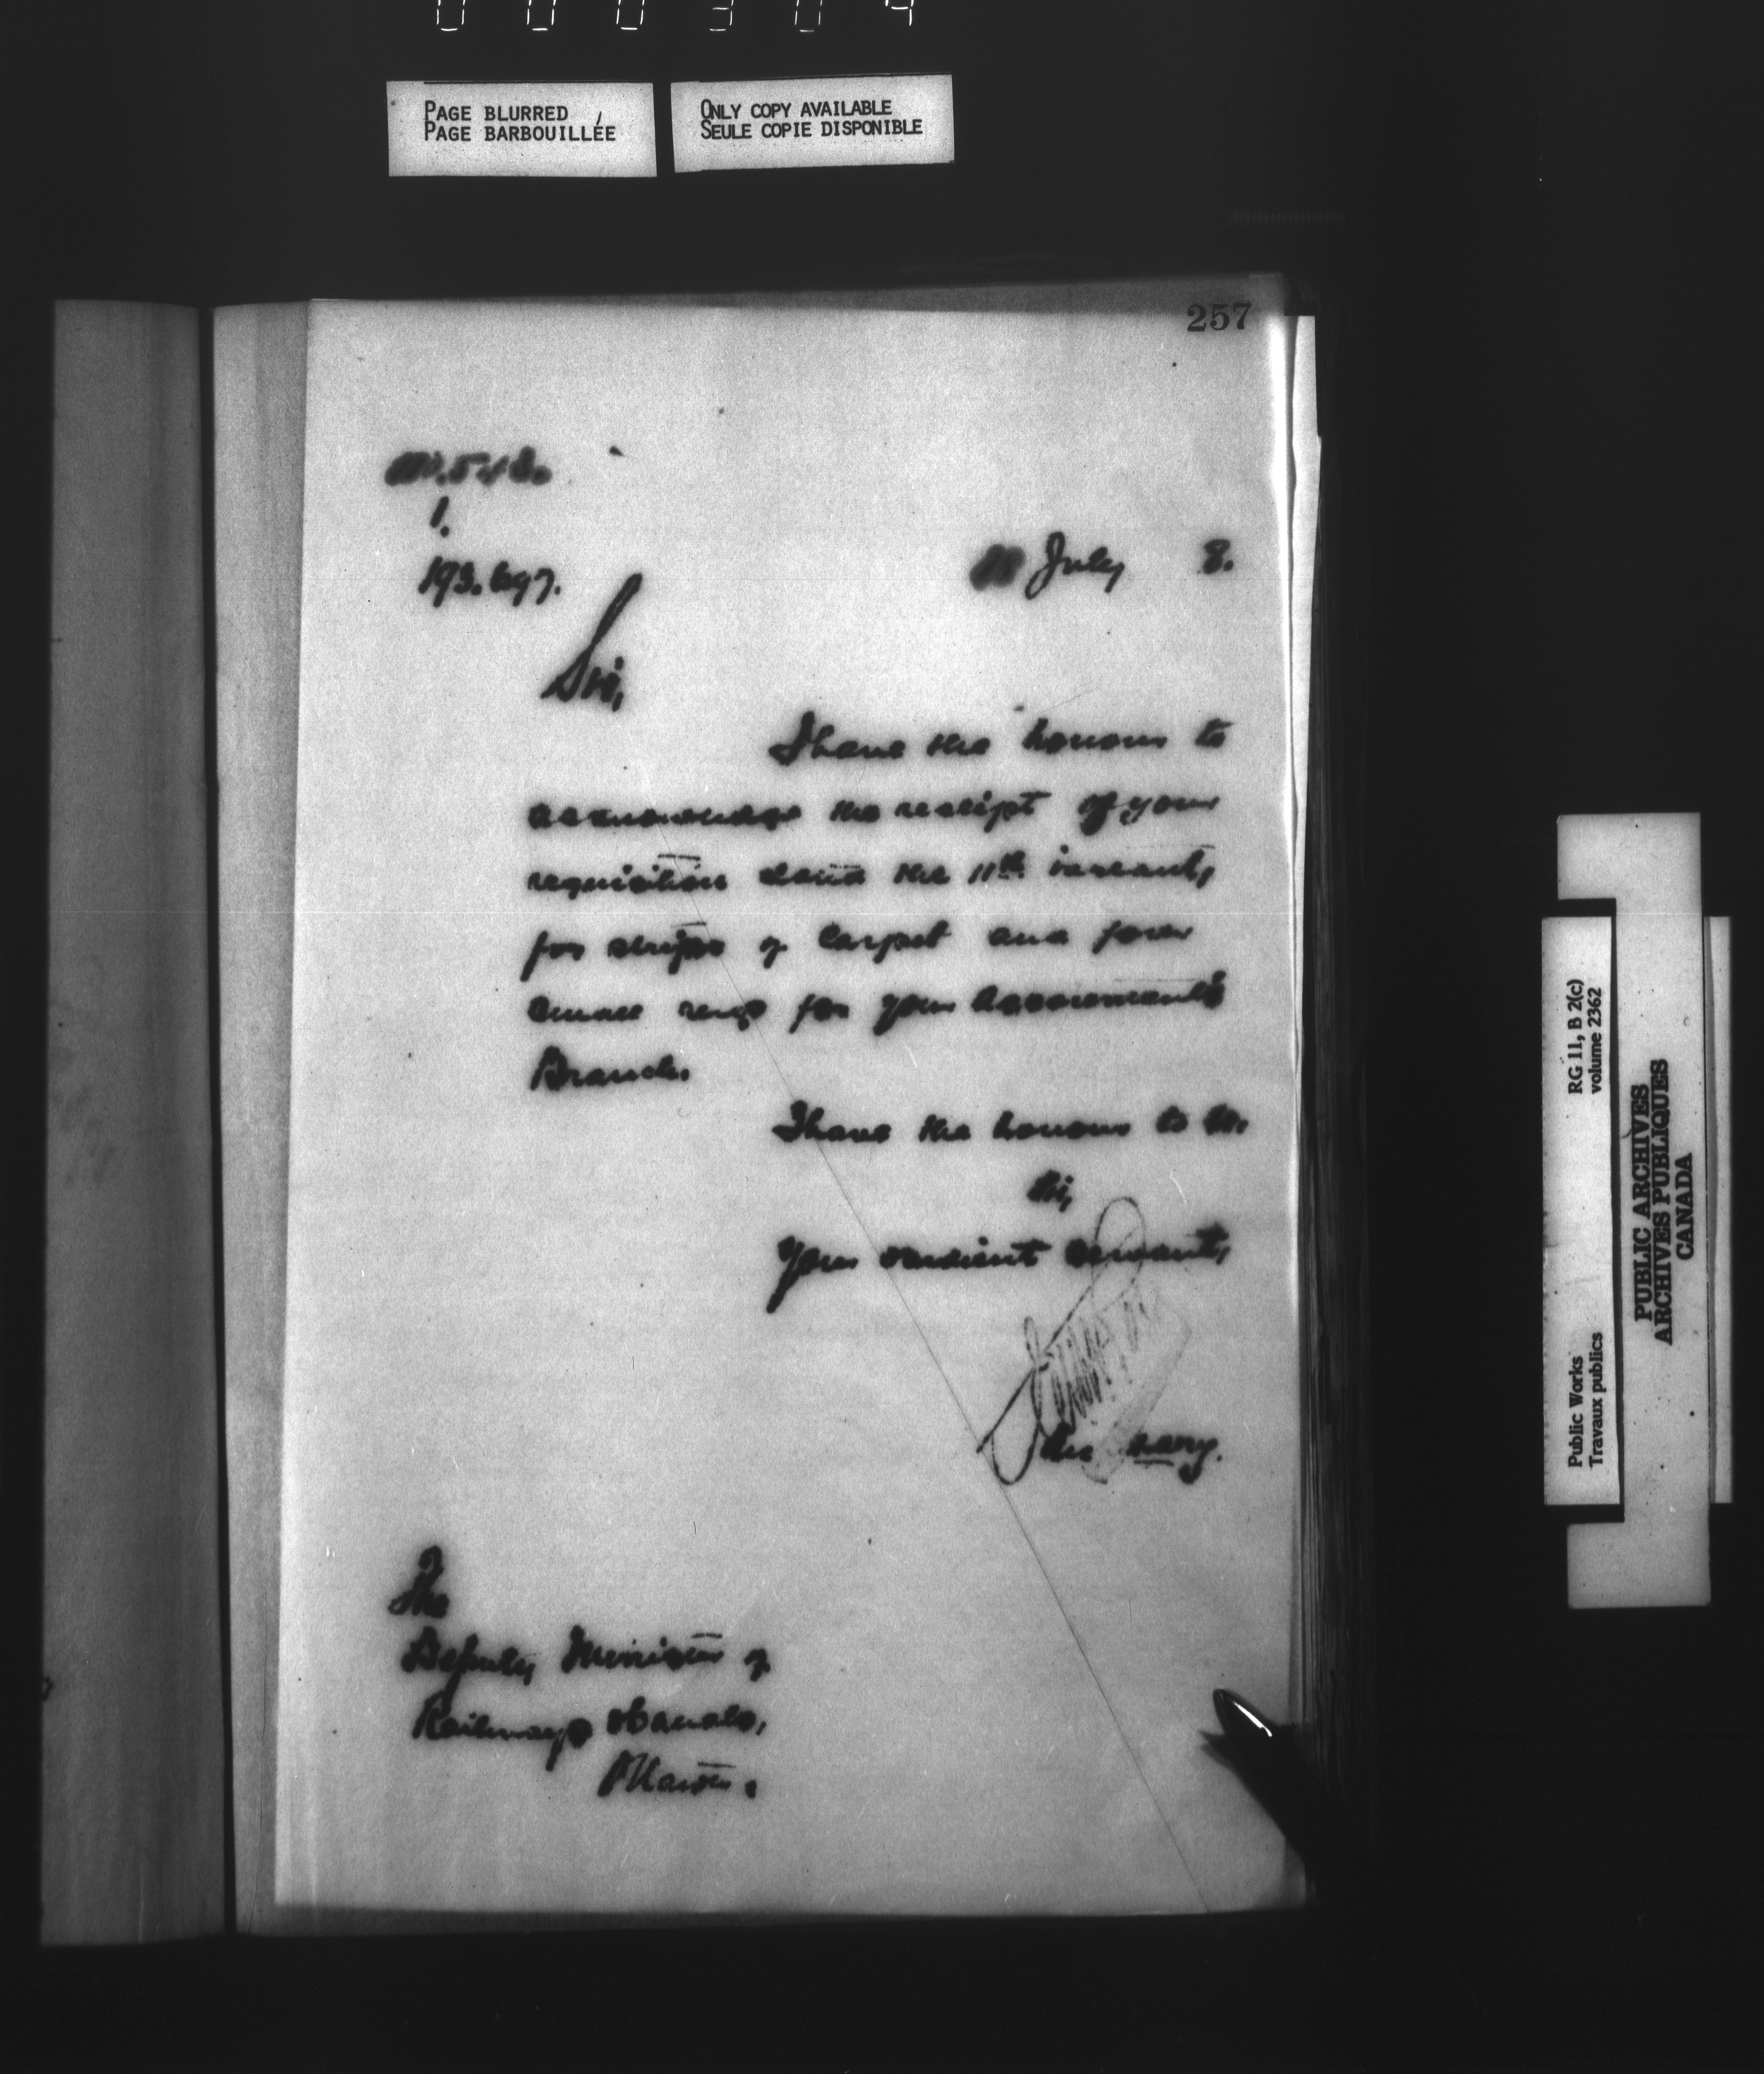 PAGE BLURRED
PAGE BARBOUILLÉE
ONLY COPY AVAILABLE
SEULE COPIE DISPONIBLE
257
1.
193.697.
July 8.
Sir,
I have the honour to
acknowledge the receipt of your
requisition dated the 11th instant,
for strips of Carpet and four
small rugs for your Accountant's
Branch.
I have the honour to be,
Sir,
Your obedient servant,
The
Deputy Minister of
Railways & Canals,
Ottawa.
RG 11, B 2(c)
volume 2362
Public Works
Travaux publics
PUBLIC ARCHIVES
ARCHIVES PUBLIQUES
CANADA